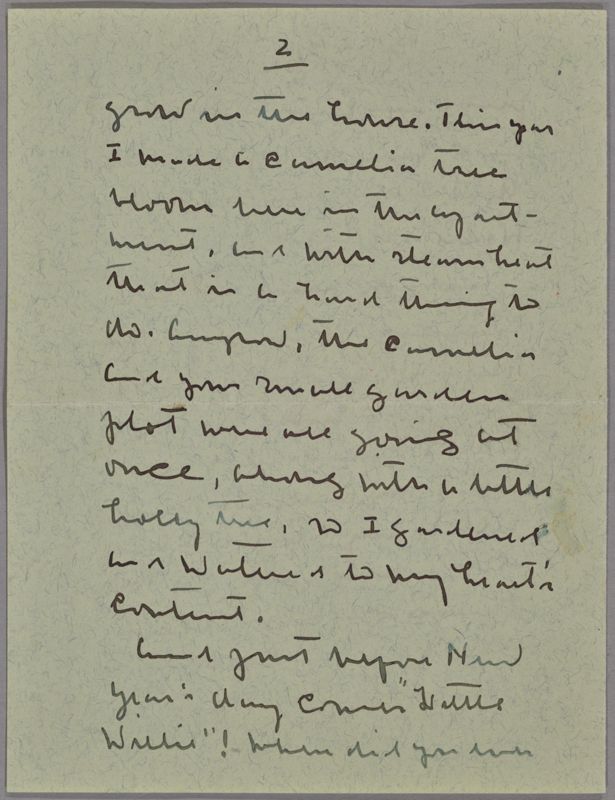 2
grow in the house. This year
I made a camellia tree
bloom here in the apart-
ment, and with steam heat
that is a hard thing to
do. Anyhow, the camellia
and your small garden
plot were all going at
once, along with a little
holly tree, so I gardened
and watered to my heart's
content.
And just before New
Year's day comes "Little
Willie"! Where did you ever